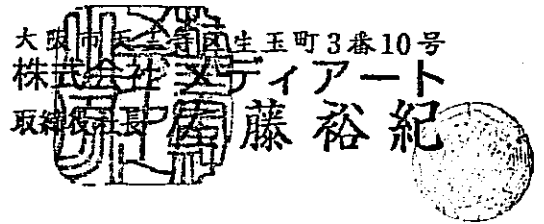 大阪市天王寺区生玉町3番10号
株式会社メディアート
取締役社長 佐藤裕紀